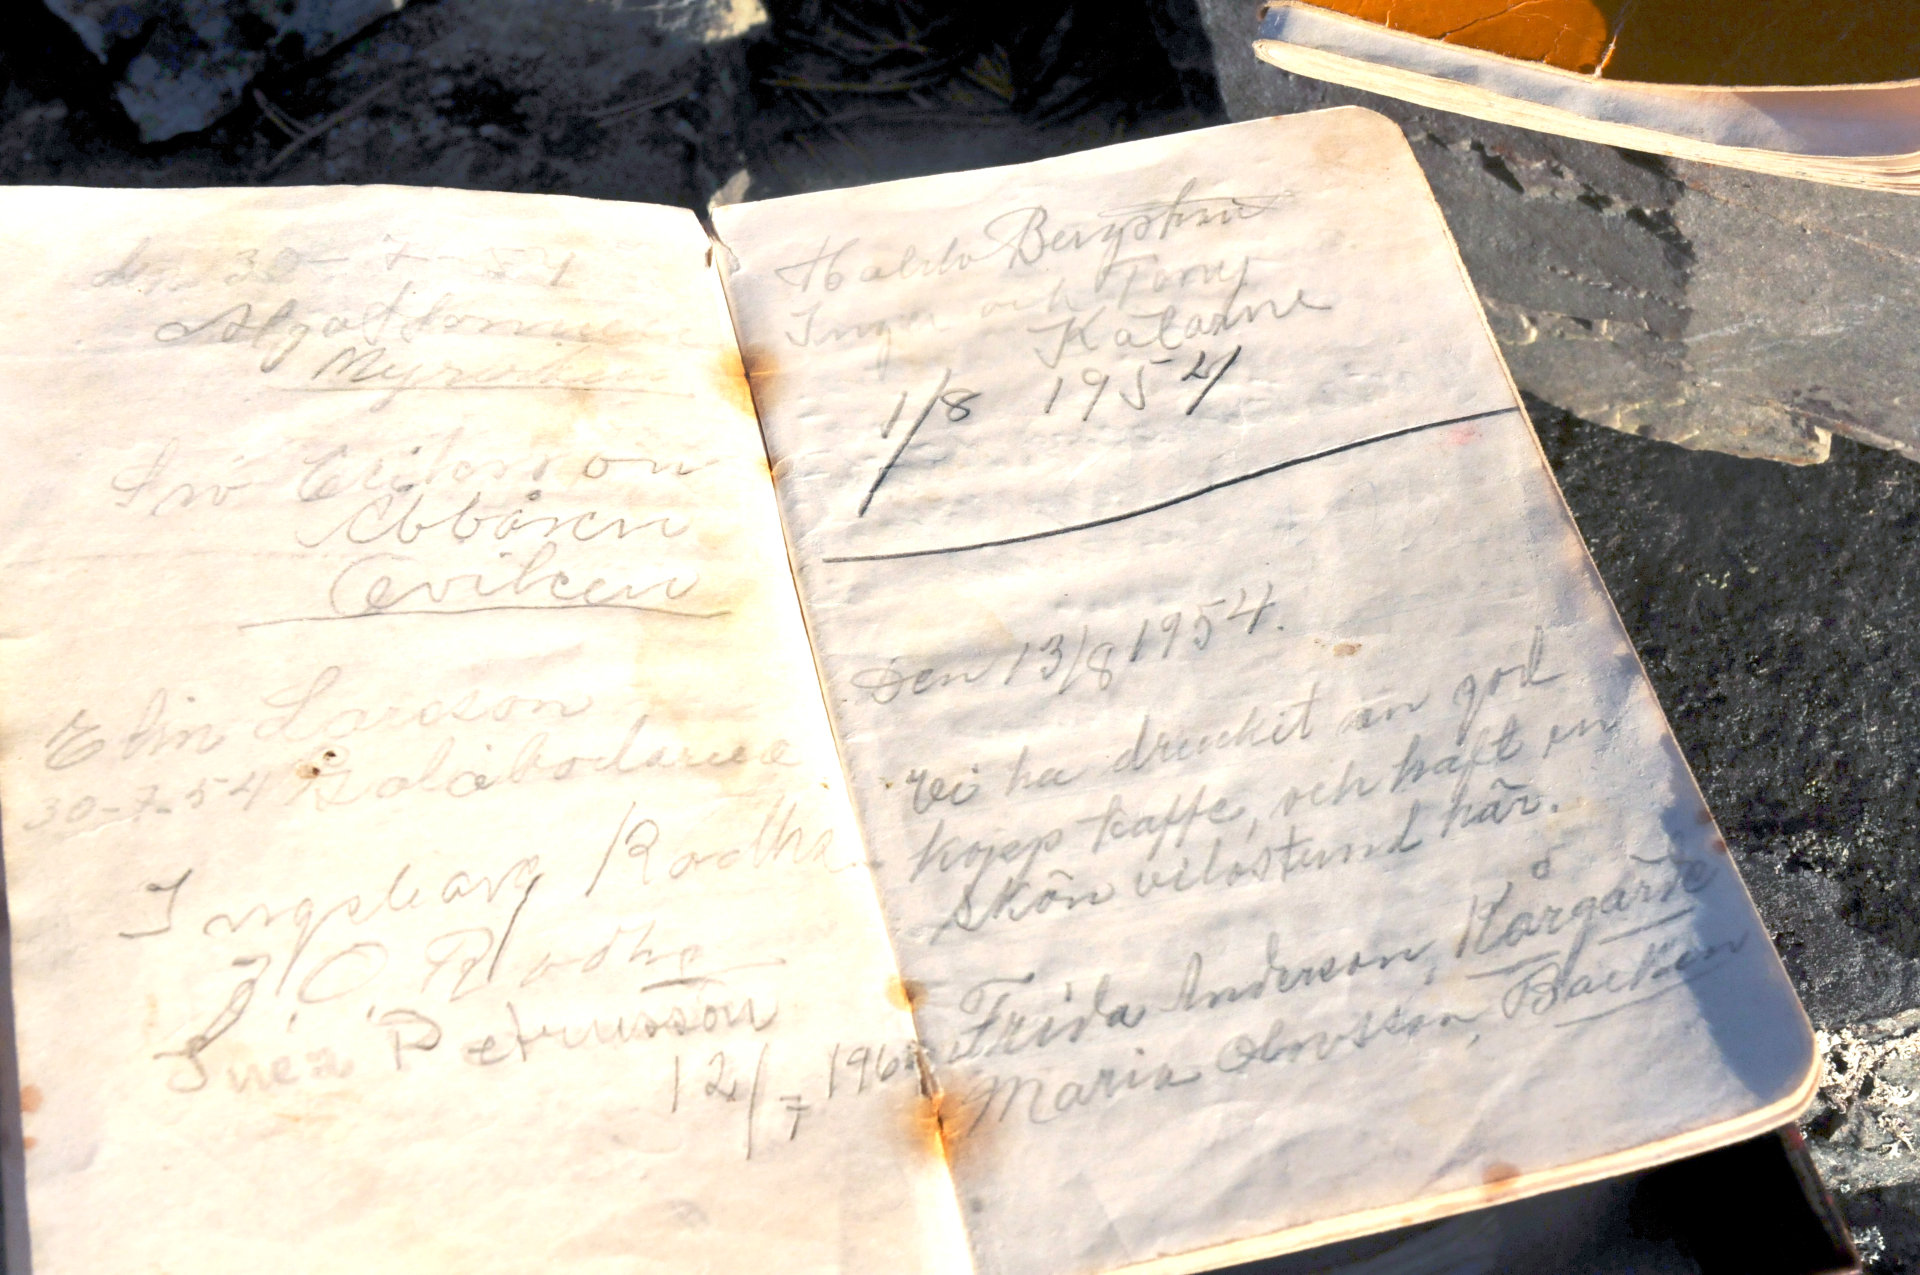 den 30-7-54
Ivö Eriksson
Abbåsen
Gviken
Elin Larsson
30-7-54 Galåbodarna
Ingeborg Rodhe
J O Rodhe
Sven Petrusson
12/7 196
Bergström
Inger och Tony
Kälarne
1/8 1954
Den 13/8 1954.
Vi ha druckit en god
kopp kaffe, och haft en
skön vilostund här.
Frida Anderson, Kårgärde
Maria Olovsson, Backen